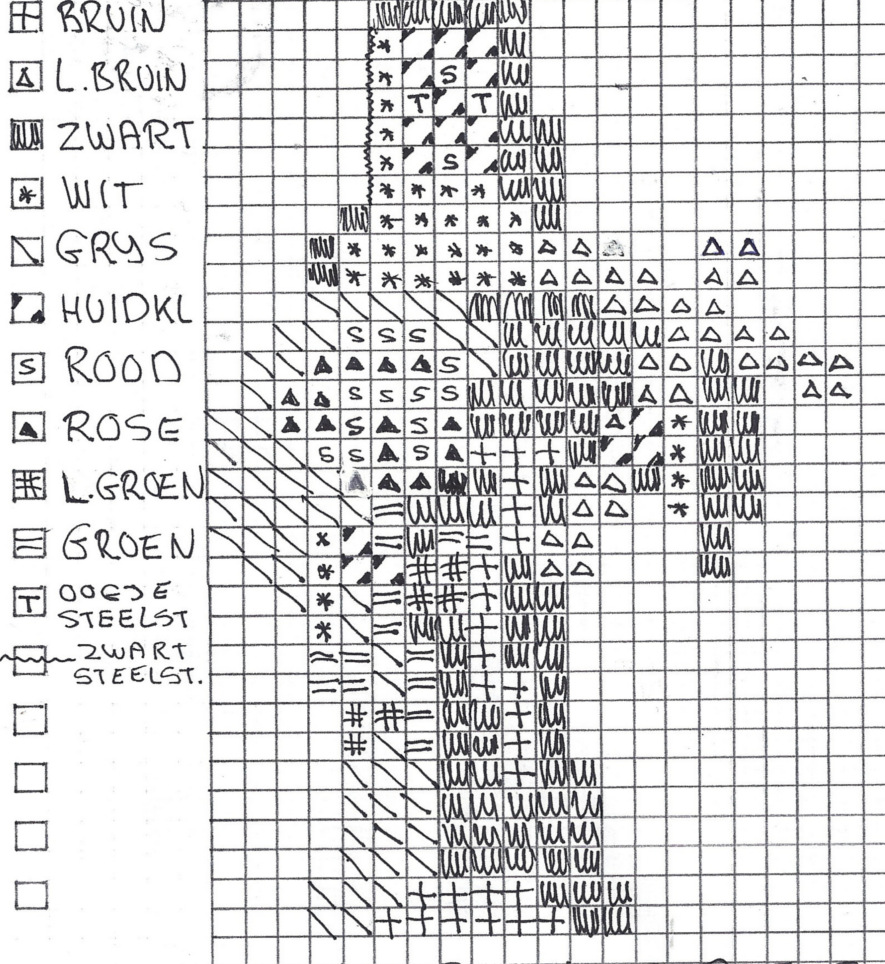 BRUIN
L.BRUIN
ZWART
WIT
GRYS
HUIDKL
ROOD
ROSE
L.GROEN
GROEN
OOGJE
STEELST
ZWART
STEELST.
S
T T
S
S S S
S
S S S S
S S
S S S